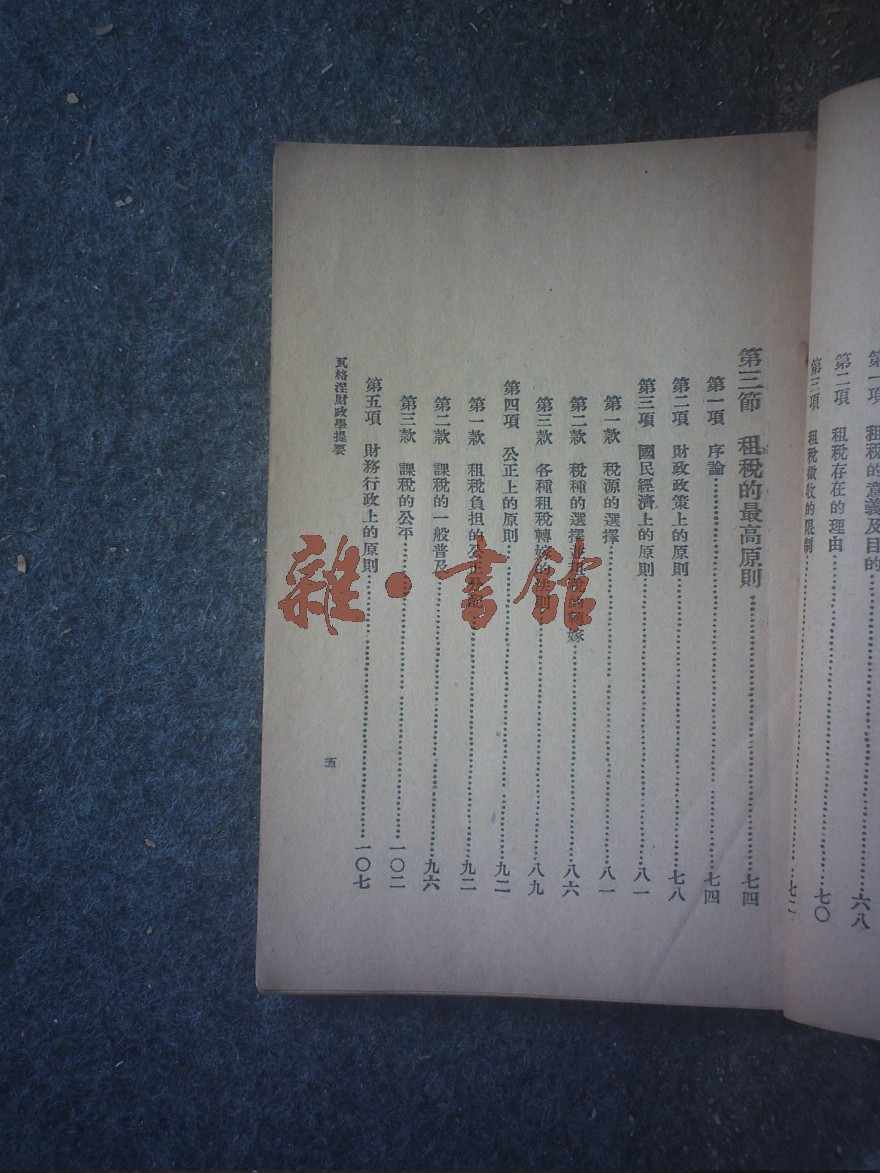 第一項 租稅的意義及目的……六八
第二項 租稅存在的理由……七〇
第三項 租稅徵收的限制……七二
第三節 租稅的最高原則……七四
第一項 序論……七四
第二項 財政政策上的原則……七八
第三項 國民經濟上的原則……八一
第一款 稅源的選擇……八一
第二款 稅種的選擇並租稅的轉嫁……八六
第三款 各種租稅轉嫁的法則……八九
第四項 公正上的原則……九二
第一款 租稅負担的公正分配……九二
第二款 課稅的一般普及……九六
第三款 課稅的公平……一〇二
第五項 財務行政上的原則……一〇七
瓦格涅財政學提要
五
雜·書館